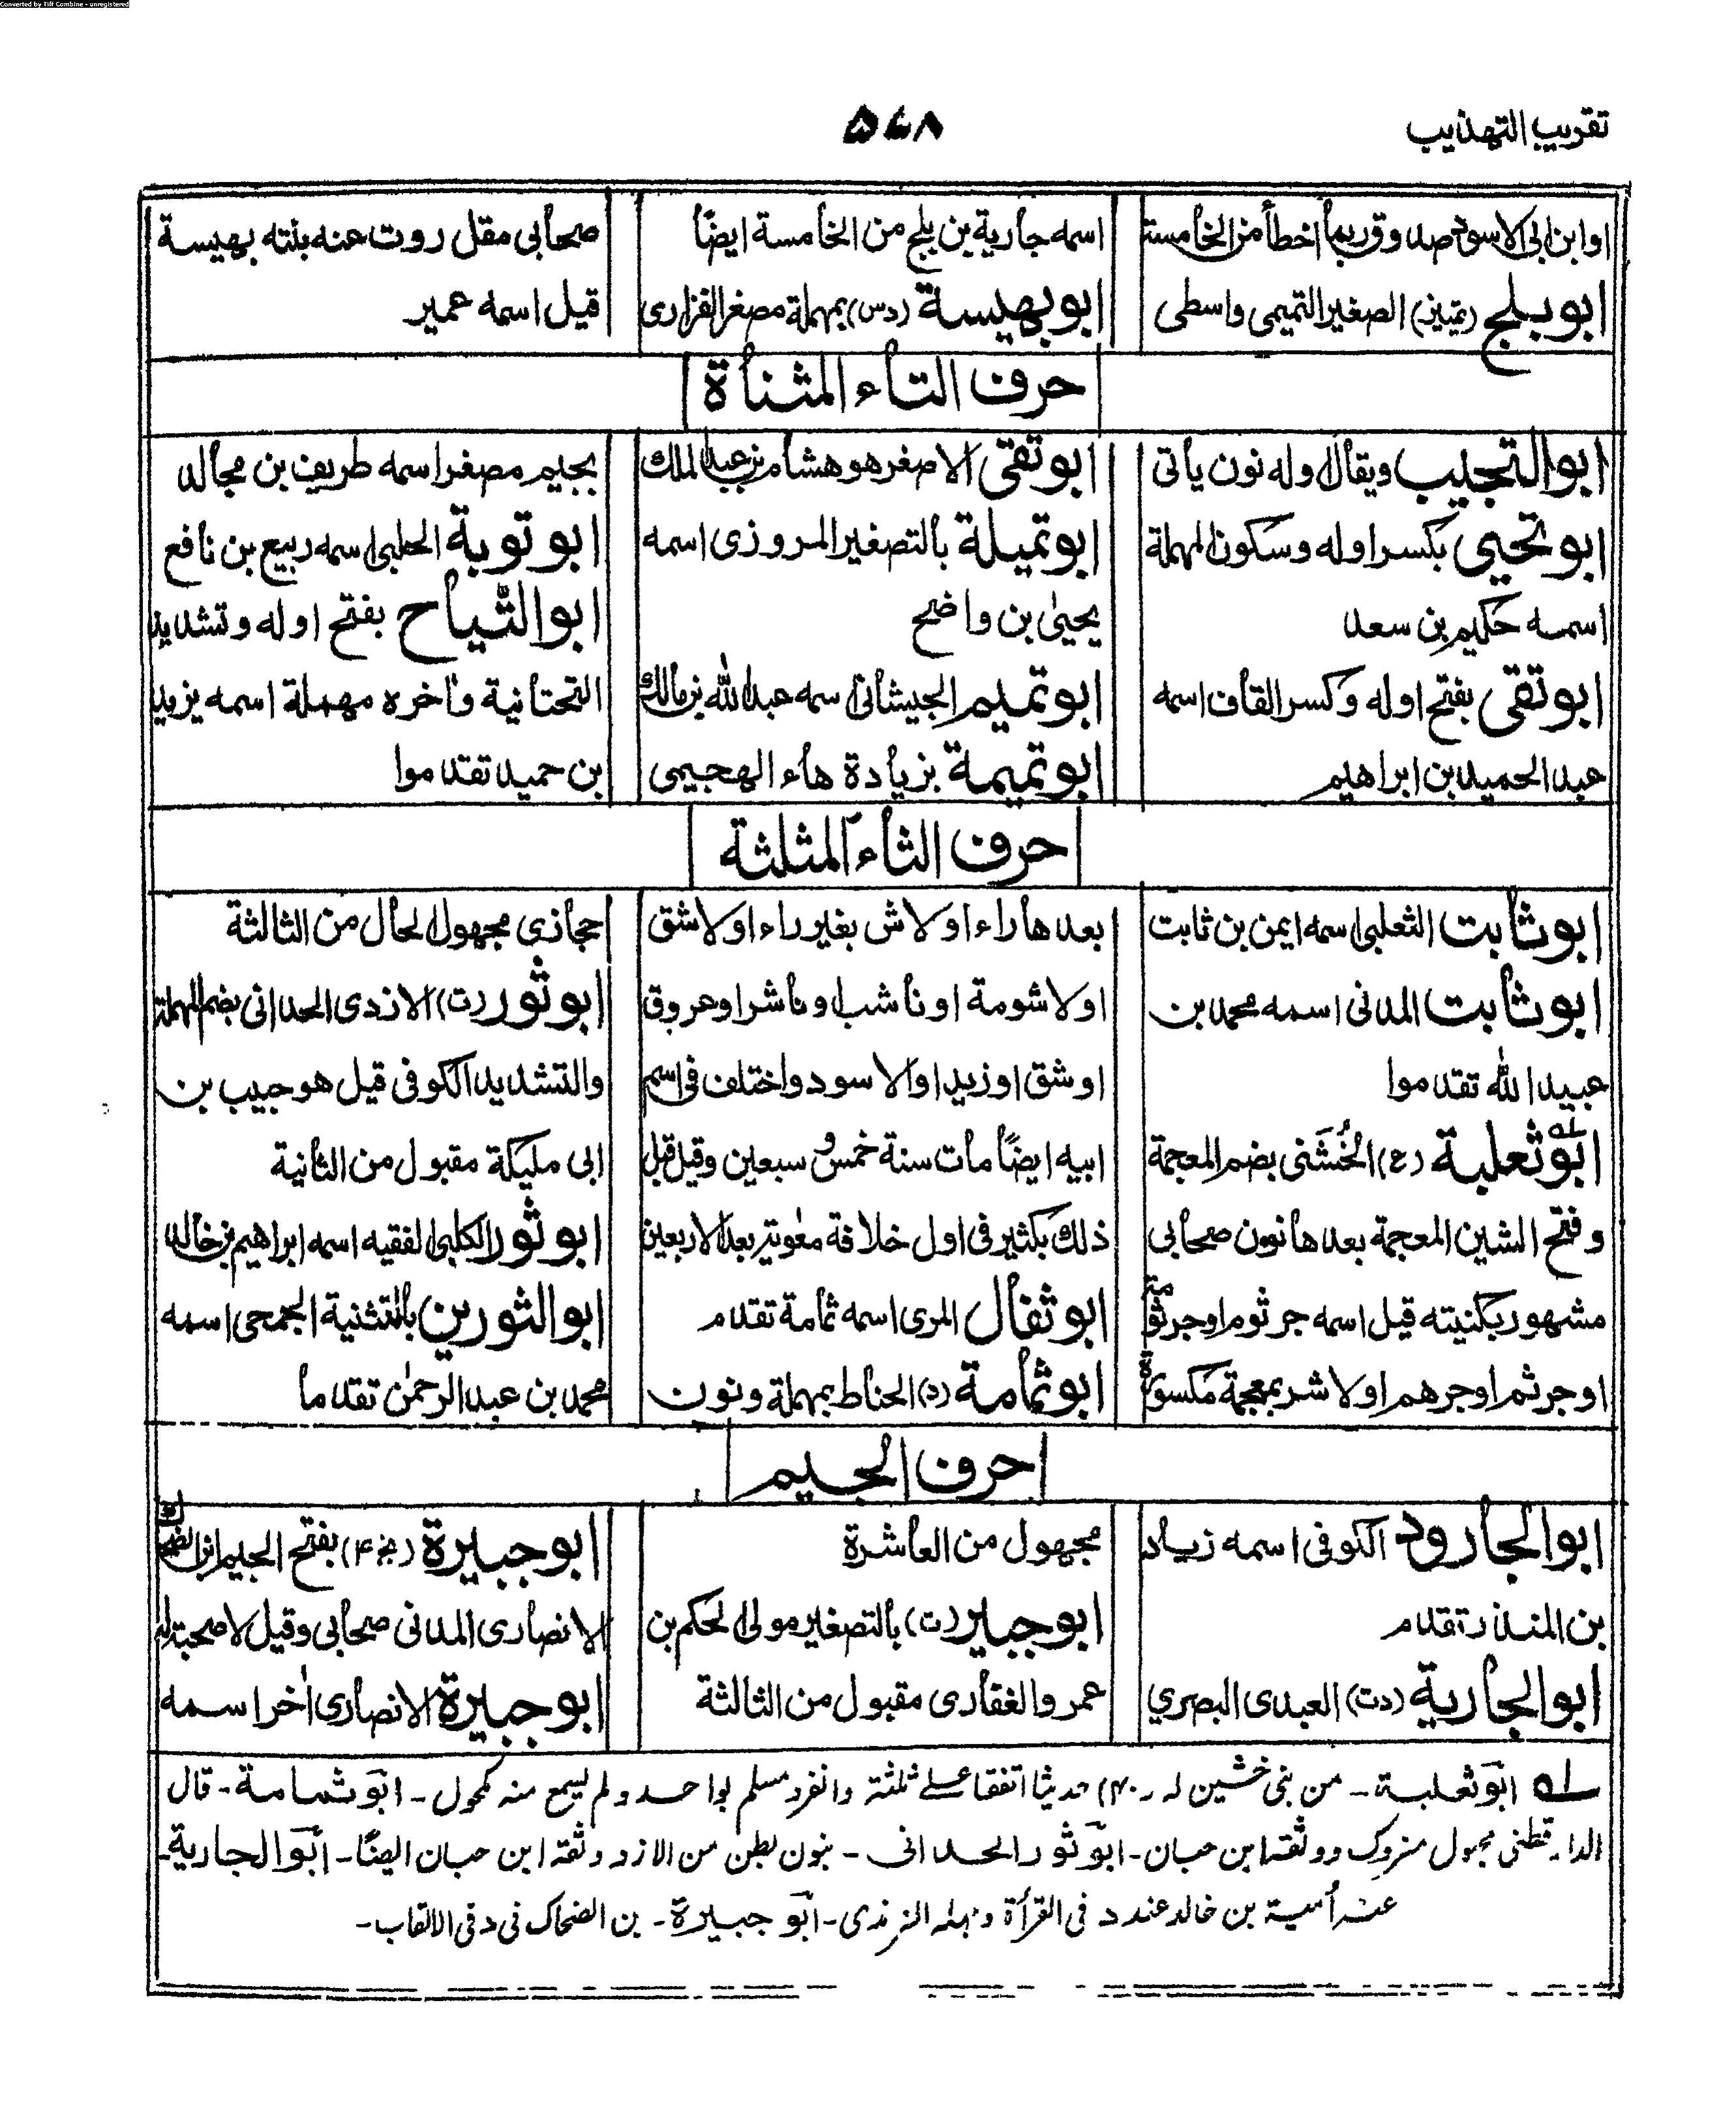 Converted by Tiff Combine - unregistered
تقريب التهذيب
۵۶۸
او ابن ابى الاسود صدوق ربما اخطأ من الخامسة
ابو بلج (تمييز) الصغير التميمى واسطى
اسمه جارية بن بلج من الخامسة ايضًا
ابو بهيسة (دس) بمهملة مصغر الفزارى
صحابى مقل روت عنه بنته بهيسة
قيل اسمه عمير
حرف التاء المثناة
ابو التجيب ويقال اوله نون يأتى
ابو تحيى بكسر اوله وسكون المهملة
اسمه حكيم بن سعد
ابو تقى بفتح اوله وكسر القاف اسمه
عبد الحميد بن ابراهيم
ابو تقى الاصغر هو هشام بن عبد الملك
ابو تميلة بالتصغير المروزى اسمه
يحيىٰ بن واضح
ابو تميم الجيشانى اسمه عبد الله بن مالك
ابو تميمة بزيادة هاء الهجيمى
بجيم مصغر اسمه طريف بن مجالد
ابو توبة الحلبى اسمه ربيع بن نافع
ابو التياح بفتح اوله وتشديد
التحتانية وآخره مهملة اسمه يزيد
بن حميد تقدموا
حرف الثاء المثلثة
ابو ثابت الثعلبى اسمه ايمن بن ثابت
ابو ثابت المدنى اسمه محمد بن
عبيد الله تقدموا
ابو ثعلبة (ع) الخُشَنى بضم المعجمة
وفتح الشين المعجمة بعدها نون صحابى
مشهور بكنيته قيل اسمه جرثوم او جرثومة
او جرثم او جرهم او لاشر بمعجمة مكسورة
بعدها راء او لاش بغير راء او لاشق
او لاشومة او ناشب او ناشر او عروق
او شق او زيد او الاسود واختلف فى اسم
ابيه ايضًا مات سنة خمس و سبعين وقيل قبل
ذلك بكثير فى اول خلافة معٰوية بعد الاربعين
ابو ثفال المرى اسمه ثمامة تقدم
ابو ثمامة (د) الحناط بمهملة ونون
حجازى مجهول الحال من الثالثة
ابو ثور (ت) الازدى الحدانى بضم المهملة
والتشديد الكوفى قيل هو حبيب بن
ابى مليكة مقبول من الثانية
ابو ثور الكلبى الفقيه اسمه ابراهيم بن خالد
ابو الثورين بالتثنية الجمحى اسمه
محمد بن عبد الرحمٰن تقدما
حرف الجيم
ابو الجارود الكوفى اسمه زياد
بن المنذر تقدم
ابو الجارية (دت) العبدى البصري
مجهول من العاشرة
ابو جبير (ت) بالتصغير مولى الحكم بن
عمرو الغفارى مقبول من الثالثة
ابو جبيرة (بخ ۴) بفتح الجيم ابن الضحاك
الانصارى المدنى صحابى وقيل لا صحبة له
ابو جبيرة الانصارى اٰخر اسمه
له ابو ثعلبة - من بنى خشين له (۴۰) حديثا اتفقا على ثلثة وانفرد مسلم بواحد ولم يسمع منه مكحول - ابو ثمامة - قال
الدارقطنى مجهول متروك ووثقه ابن حبان - ابو ثور الحدانى - بنون بطن من الازد وثقه ابن حبان ايضًا - ابو الجارية -
عنه أمية بن خالد عند د فى القرأة وجهله الترمذى - ابو جبيرة - بن الضحاك فى د فى الالقاب -